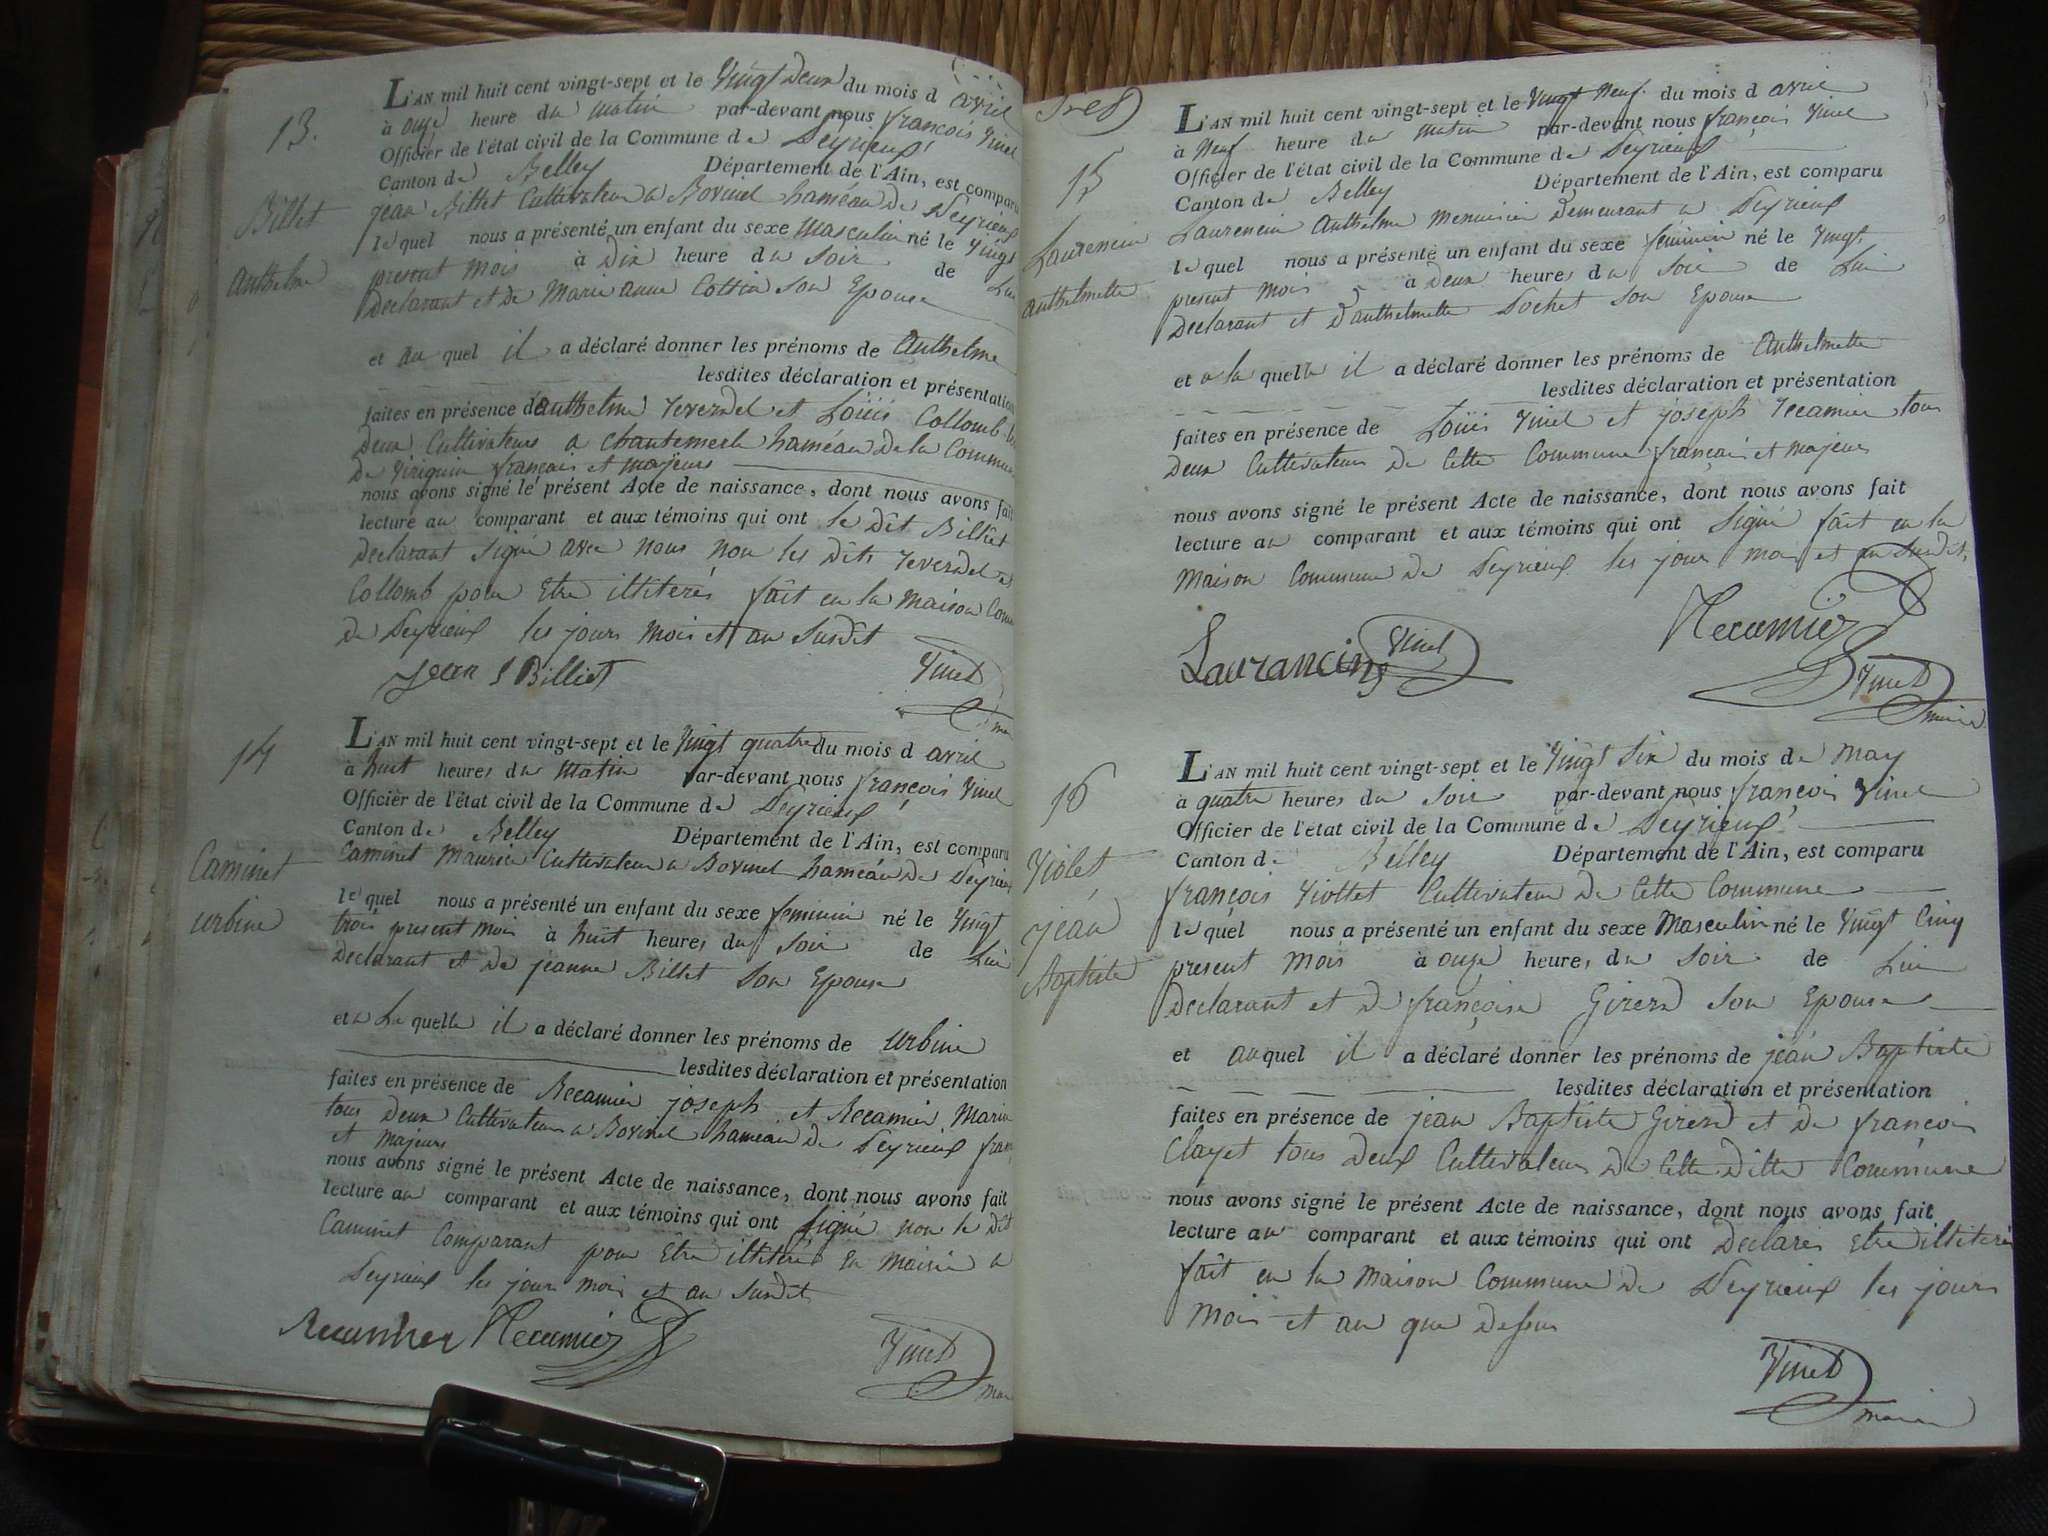 13.
Billet
Anthelme
L'AN mil huit cent vingt-sept et le vingt Deux du mois d avril
à onze heure du matin par-devant nous françois Vinet
Officier de l'état civil de la Commune de Peyrieux
Canton de Belley Département de l'Ain, est comparu
jean Billet Cultivateur a Bovinel haméau de Peyrieux
lequel nous a présenté un enfant du sexe masculin né le vingt
present mois à Dix heure du soir de Lui
Declarant et de Marie anne Cottin son Epouse
et au quel il a déclaré donner les prénoms de Anthelme
lesdites déclaration et présentation
faites en présence de Anthelme Reverdel et Loüis Collomb
Deux Cultivateurs a Chantemerle haméau De la Commune
de Virignin français et majeurs
nous avons signé le présent Acte de naissance, dont nous avons fait
lecture au comparant et aux témoins qui ont le dit Billet
Declarant signé avec nous non les dits Reverdel et
Collomb pour Etre illiterés fait en la maison Com
de Peyrieux les jours mois et an susdit
Jean Billiet Vinet
14
Caminet
urbine
L'AN mil huit cent vingt-sept et le vingt quatre du mois d avril
à huit heures du matin par-devant nous françois Vinet
Officier de l'état civil de la Commune de Peyrieux
Canton de Belley Département de l'Ain, est comparu
Caminet Maurice Cultivateur a Bovinel haméau de Peyrieux
lequel nous a présenté un enfant du sexe feminin né le vingt
trois present mois à huit heures du soir de Lui
Declarant et de jeanne Billet son Epouse
et a La quelle il a déclaré donner les prénoms de urbine
lesdites déclaration et présentation
faites en présence de Recamier joseph et Recamier Marin
tous deux Cultivateurs a Bovinel haméau de Peyrieux fran
et majeurs
nous avons signé le présent Acte de naissance, dont nous avons fait
lecture au comparant et aux témoins qui ont signé non le dit
Caminet Comparant pour Etre illiteré En mairie a
Peyrieux les jours mois et an susdit
Recamier Recamier Vinet
15
Laurencin
Anthelmette
L'AN mil huit cent vingt-sept et le vingt Neuf du mois d avril
à Neuf heure du matin par-devant nous françois Vinet
Officier de l'état civil de la Commune de Peyrieux
Canton de Belley Département de l'Ain, est comparu
Laurencin Anthelme Menuisier Demeurant a Peyrieux
lequel nous a présenté un enfant du sexe feminin né le vingt
present mois à deux heures du soir de Lui
Declarant et D'anthelmette Sochet son Epouse
et a la quelle il a déclaré donner les prénoms de Anthelmette
lesdites déclaration et présentation
faites en présence de Loüis Vinet et joseph Recamier tous
Deux Cultivateurs de Cette Commune français et majeurs
nous avons signé le présent Acte de naissance, dont nous avons fait
lecture au comparant et aux témoins qui ont signé fait en la
Maison Commune de Peyrieux les jour mois et an susdit
Recamier
Laurancin Vinet
Vinet
maire
16
Violet
jean
Baptiste
L'AN mil huit cent vingt-sept et le vingt six du mois de may
à quatre heures du soir par-devant nous françois Vinet
Officier de l'état civil de la Commune de Peyrieux
Canton de Belley Département de l'Ain, est comparu
françois Viollet Cultivateur de Cette Commune
lequel nous a présenté un enfant du sexe Masculin né le vingt Cinq
present mois à onze heures du soir de Lui
Declarant et de françoise Girerd son Epouse
et auquel il a déclaré donner les prénoms de jean Baptiste
lesdites déclaration et présentation
faites en présence de jean Baptiste Girerd et de françois
Clayet tous Deux Cultivateurs de Cette ditte Commune
nous avons signé le présent Acte de naissance, dont nous avons fait
lecture au comparant et aux témoins qui ont Declarés Etre illiterés
fait en la Maison Commune de Peyrieux les jours
mois et an que dessus
Vinet
maire